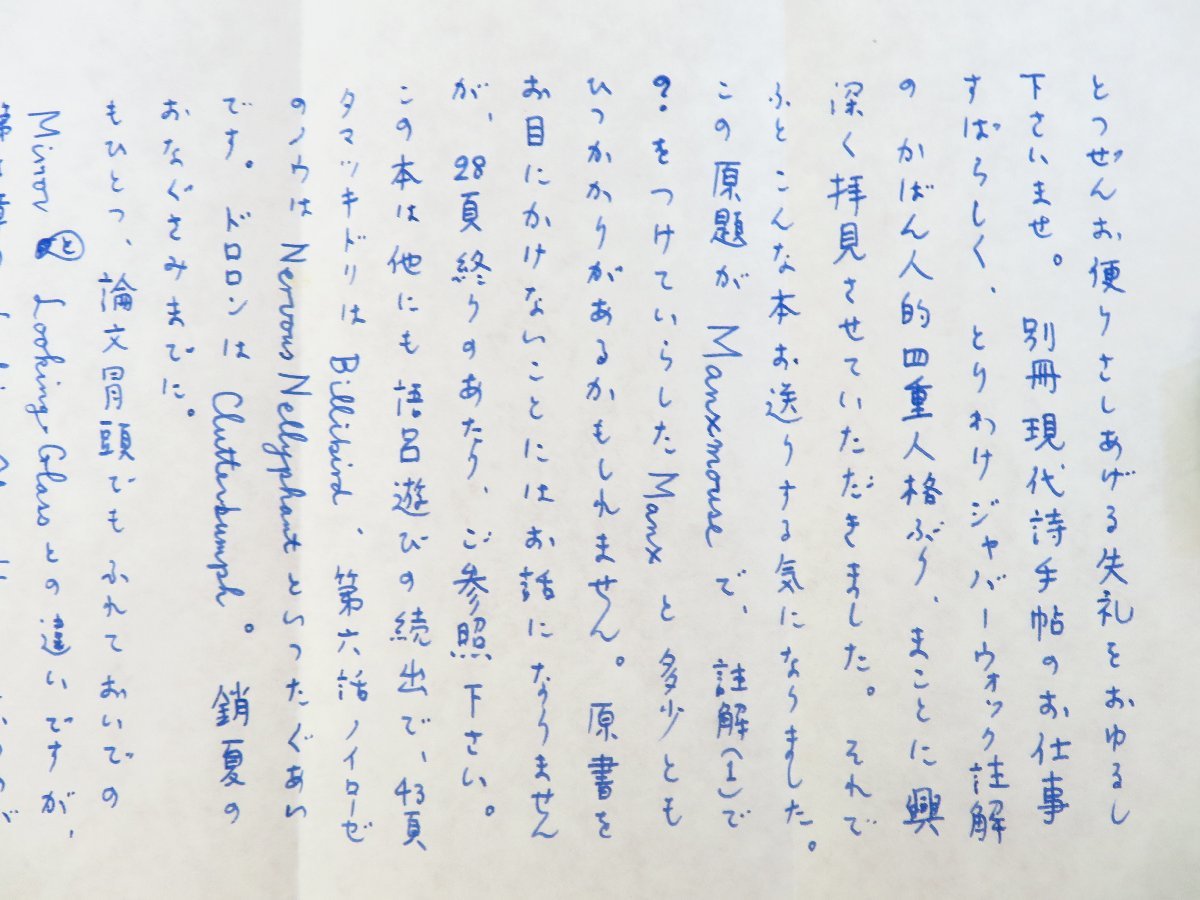 とつぜんお便りさしあげる失礼をおゆるし
下さいませ。別冊現代詩手帖のお仕事
すばらしく、とりわけジャバーウォック註解
のかばん人的四重人格ぶり、まことに興
深く拝見させていただきました。それで
ふとこんな本お送りする気になりました。
この原題が Manxmouse で、註解(1)で
?をつけていらした Manx と多少とも
ひっかかりがあるかもしれません。原書を
お目にかけないことにはお話になりません
が、28頁終りのあたり、ご参照下さい。
この本は他にも語呂遊びの続出で、43頁
タマツキドリは Billibird、第六話ノイローゼ
のゾウは Nervous Nellyphant といったぐあい
です。ドロロンは Clutterbumph。銷夏の
おなぐさみまでに。
もひとつ、論文冒頭でもふれておいでの
Mirror と Looking-Glass との違いですが、